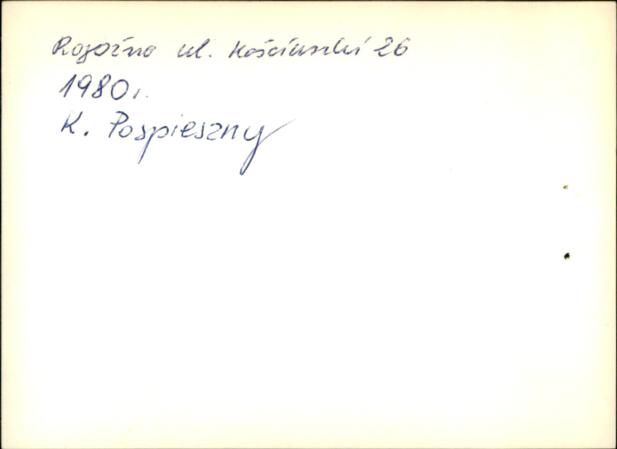 Rogoźno ul. Kościuszki 26
1980r.
K. Pospieszny